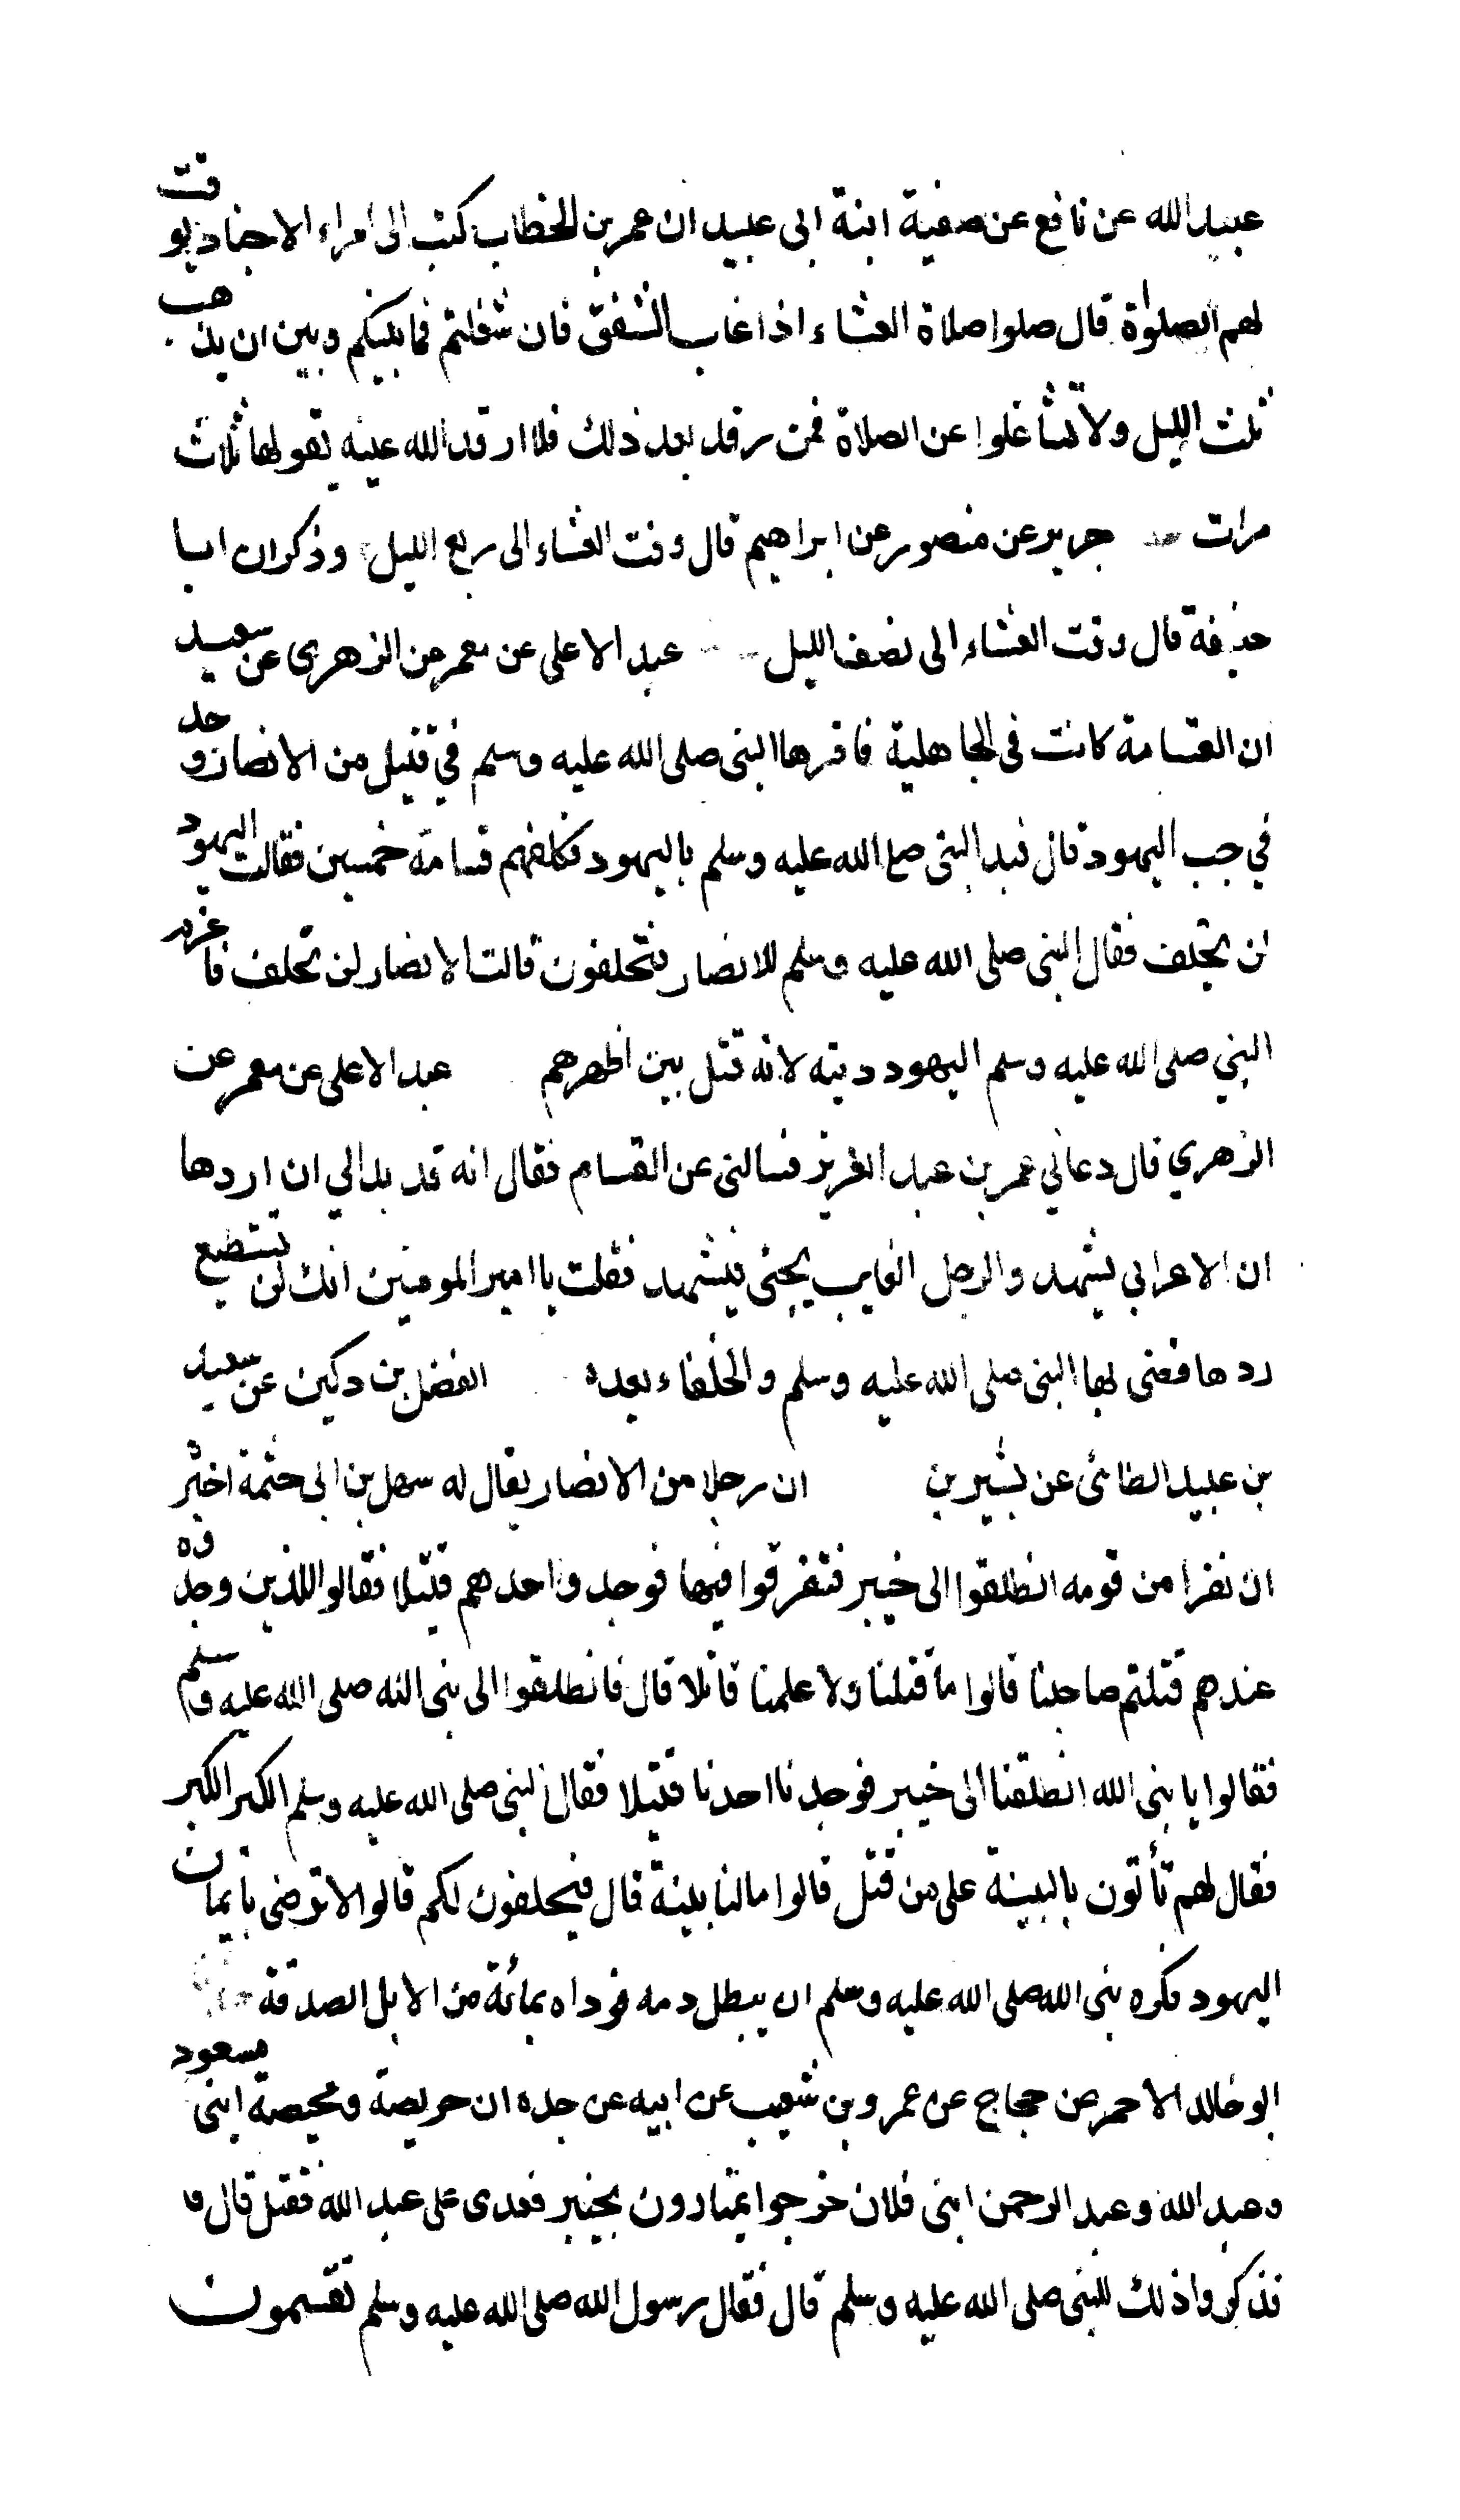 عبيد الله عن نافع عن صفية ابنة ابى عبيد ان عمر بن الخطاب كتب الى امراء الاجناد يوقت
لهم الصلوة قال صلوا صلاة العشاء اذا غاب الشفق فان شغلتم فما بينكم وبين ان يذهب
ثلث الليل ولا تشاغلوا عن الصلاة فمن رقد بعد ذلك فلا ارقد الله عينه يقولها ثلاث
مرات جرير عن منصور عن ابراهيم قال وقت العشاء الى ربع الليل وذكر ان ابا
حذيفة قال وقت العشاء الى نصف الليل عبد الاعلى عن معمر عن الزهرى عن سعيد
ان القسامة كانت فى الجاهلية فاقرها النبى صلى الله عليه وسلم في قتيل من الانصار وجد
في جب اليهود قال فبدا النبى صلع الله عليه وسلم باليهود فكلفهم قسامة خمسين فقالت اليهود
لن نحلف فقال النبى صلى الله عليه وسلم للانصار فتحلفون قالت الانصار لن نحلف فاغرم
النبي صلى الله عليه وسلم اليهود ديته لانه قتل بين اظهرهم عبد الاعلى عن معمر عن
الزهري قال دعاني عمر بن عبد العزيز فسالنى عن القسام فقال انه قد بدالي ان اردها
ان الاعرابي يشهد والرجل الغايب يجئ فيشهد فقلت يا امير المومنين انك لن تستطيع
ردها قضى بها النبى صلى الله عليه وسلم والخلفاء بعده الفضل بن دكين عن سعيد
بن عبيد الطائى عن بشير بن ان رجلا من الانصار يقال له سهل بن ابى حثمة اخبر
ان نفرا من قومه انطلقوا الى خيبر فتفرقوا فيها فوجدوا احدهم قتيلا فقالوا للذين وجدوه
عندهم قتلتم صاحبنا قالوا ما قتلنا ولا علمنا قاتلا قال فانطلقوا الى نبى الله صلى الله عليه وسلم
فقالوا يا نبى الله انطلقنا الى خيبر فوجدنا احدنا قتيلا فقال النبى صلى الله عليه وسلم الكبر الكبر
فقال لهم تأتون بالبينة على من قتل قالوا مالنا بينة قال فيحلفون لكم قالوا لا نرضى بايمان
اليهود فكره نبى الله صلى الله عليه وسلم ان يبطل دمه فوداه بمائة من الابل الصدقة
ابو خالد الاحمر عن حجاج عن عمرو بن شعيب عن ابيه عن جده ان حويصة ومحيصة ابنى مسعود
وعبد الله وعبد الرحمن ابنى فلان خرجوا يمتارون بخيبر فعدى على عبد الله فقتل قال
فذكروا ذلك للنبى صلى الله عليه وسلم قال فقال رسول الله صلى الله عليه وسلم تقسمون